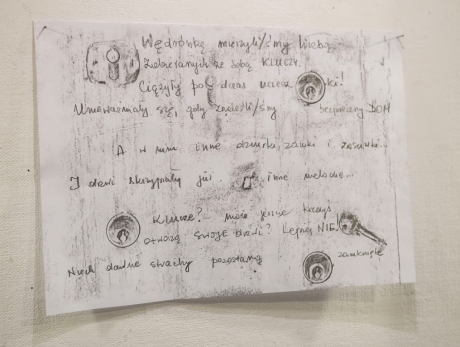 Wędrówkę mierzyli/śmy liczbą
Zabieranych ze sobą KLUCZY.
Ciążyły podczas ucieczki!
Unieważniały się, gdy znaleźli/śmy bezpieczny DOM
A w nim inne drzwi, zamki i zasuwki...
I drzwi skrzypiały już... inne melodie...
KLUCZE? może jeszcze kiedyś
otworzą swoje drzwi? Lepiej NIE!
Niech dawne strachy pozostaną zamknięte